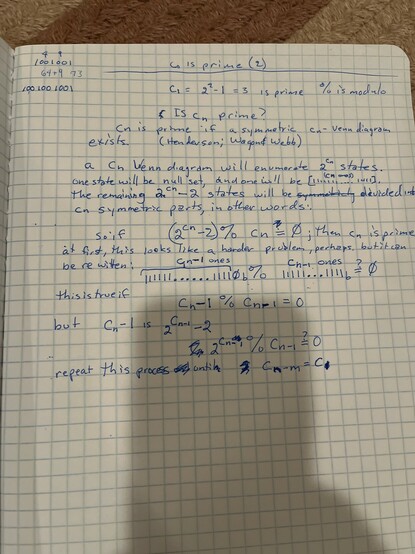 8 9
1001001
64+9 73
100 100 1001
c₀ is prime (2)
C₁ = 2² - 1 = 3 is prime % is modulo
Is cₙ prime?
Cₙ is prime if a symmetric cₙ-Venn diagram
exists. (Henderson; Wagon & Webb)
a Cₙ Venn diagram will enumerate 2^Cₙ states.
one state will be null set, and one will be
The remaining 2^Cₙ - 2 states will be divided into
Cₙ symmetric parts, in other words:
so if (2^Cₙ - 2) % Cₙ ≟ ∅; then cₙ is prime
at first, this looks like a harder problem, perhaps, but it can
be re written: Cₙ-1 ones Cₙ₋₁ ones
||||||.....||||∅b % ||||||....||||b ≟ ∅
this is true if
Cₙ-1 % Cₙ₋₁ = 0
but Cₙ-1 is 2^Cₙ₋₁ - 2
∴ % Cₙ₋₁ ≟ 0
repeat this process until